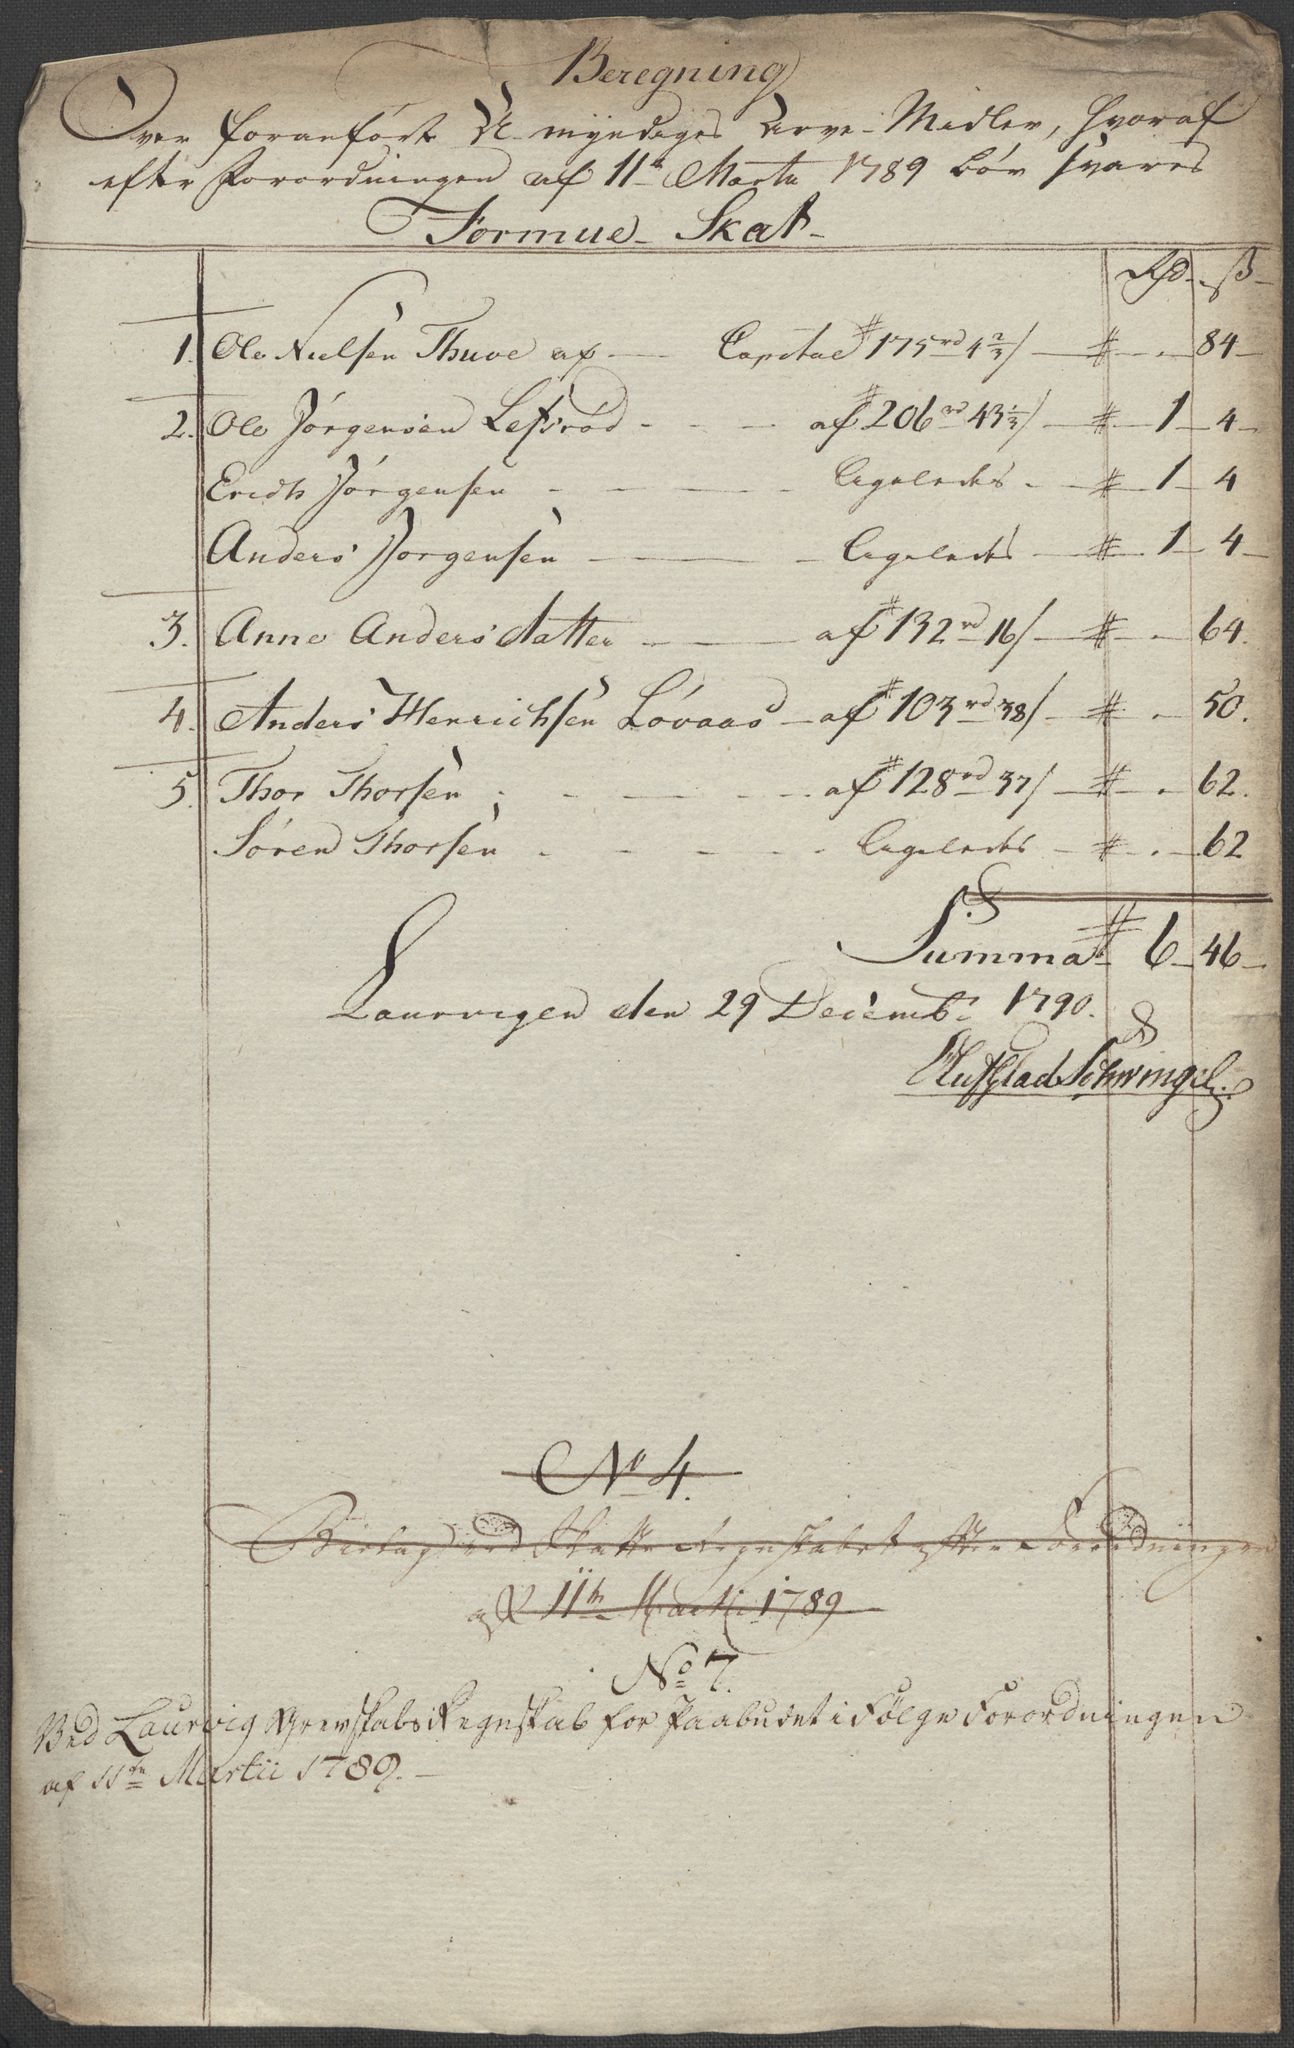 Beregning
Over foranförte U-myndiges Arve-Midler, hvoraf
efter Forordningen af 11te Martii 1789 bör svares
Formue-Skat-
Rd ß
1. Ole Nielsen Thuve af Capital # 175 rd 4 2/3 ß # . 84
2. Ole Jörgensen Lefsröd af # 206 rd 43 1/3 ß # 1 4
Erich Jörgensen Ligeledes # 1 4
Anders Jörgensen Ligeledes # 1 4
3. Anne Andersdatter af # 132 rd 16 ß # . 64.
4. Anders Henrichsen Lövaas af # 103 rd 38 ß # . 50.
5. Thor Thorsen af # 128 rd 37 ß # . 62.
Sören Thorsen Ligeledes # . 62
Summa # 6 46
Laurvigen den 29 Decembr 1790.
Schwingel.
No 4.
Bielag ved Skatte Regnskabet efter Forordningen
af 11te Martii 1789
No 7.
Ved Laurvig Grevskabs Regnskab for Paabudet i Fölge Forordningen
af 11te Martii 1789.